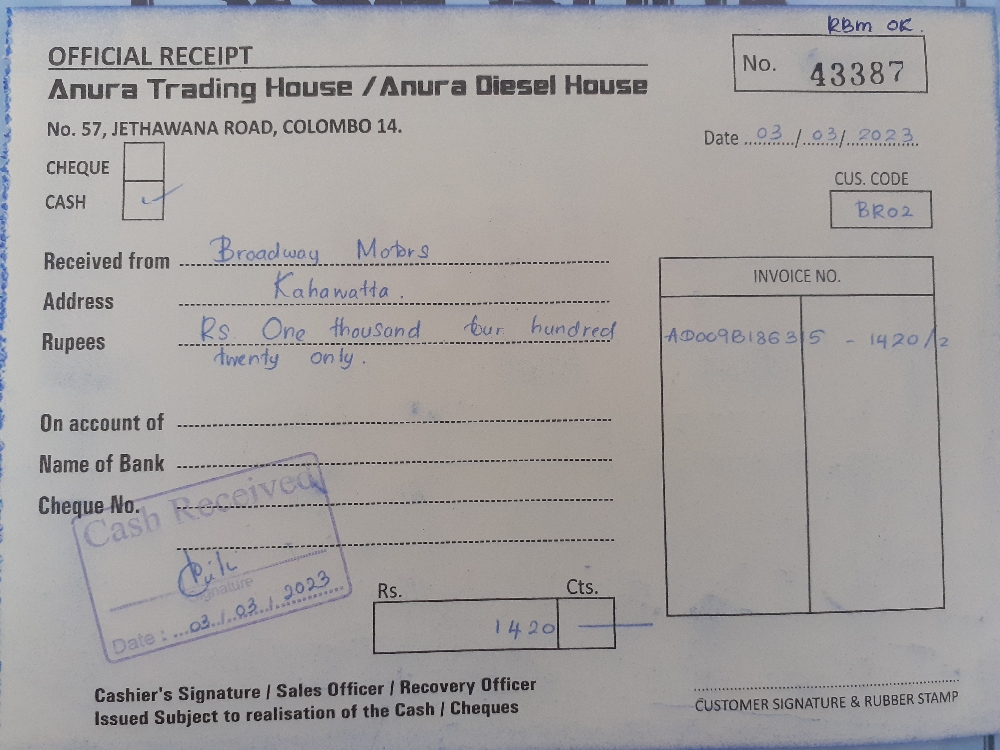 RBM OK.
OFFICIAL RECEIPT
No. 43387
Anura Trading House / Anura Diesel House
No. 57, JETHAWANA ROAD, COLOMBO 14.
Date 03/03/2023
CHEQUE
CASH ✓
CUS. CODE
BR02
Received from Broadway Motors
Address Kahawatta.
Rupees Rs. One thousand four hundred
twenty only.
INVOICE NO.
AD009B186315 - 1420/2
On account of
Name of Bank
Cheque No.
Cash Received
Signature
Date : 03/03/2023
Rs. Cts.
1420 —
Cashier's Signature / Sales Officer / Recovery Officer
Issued Subject to realisation of the Cash / Cheques
CUSTOMER SIGNATURE & RUBBER STAMP